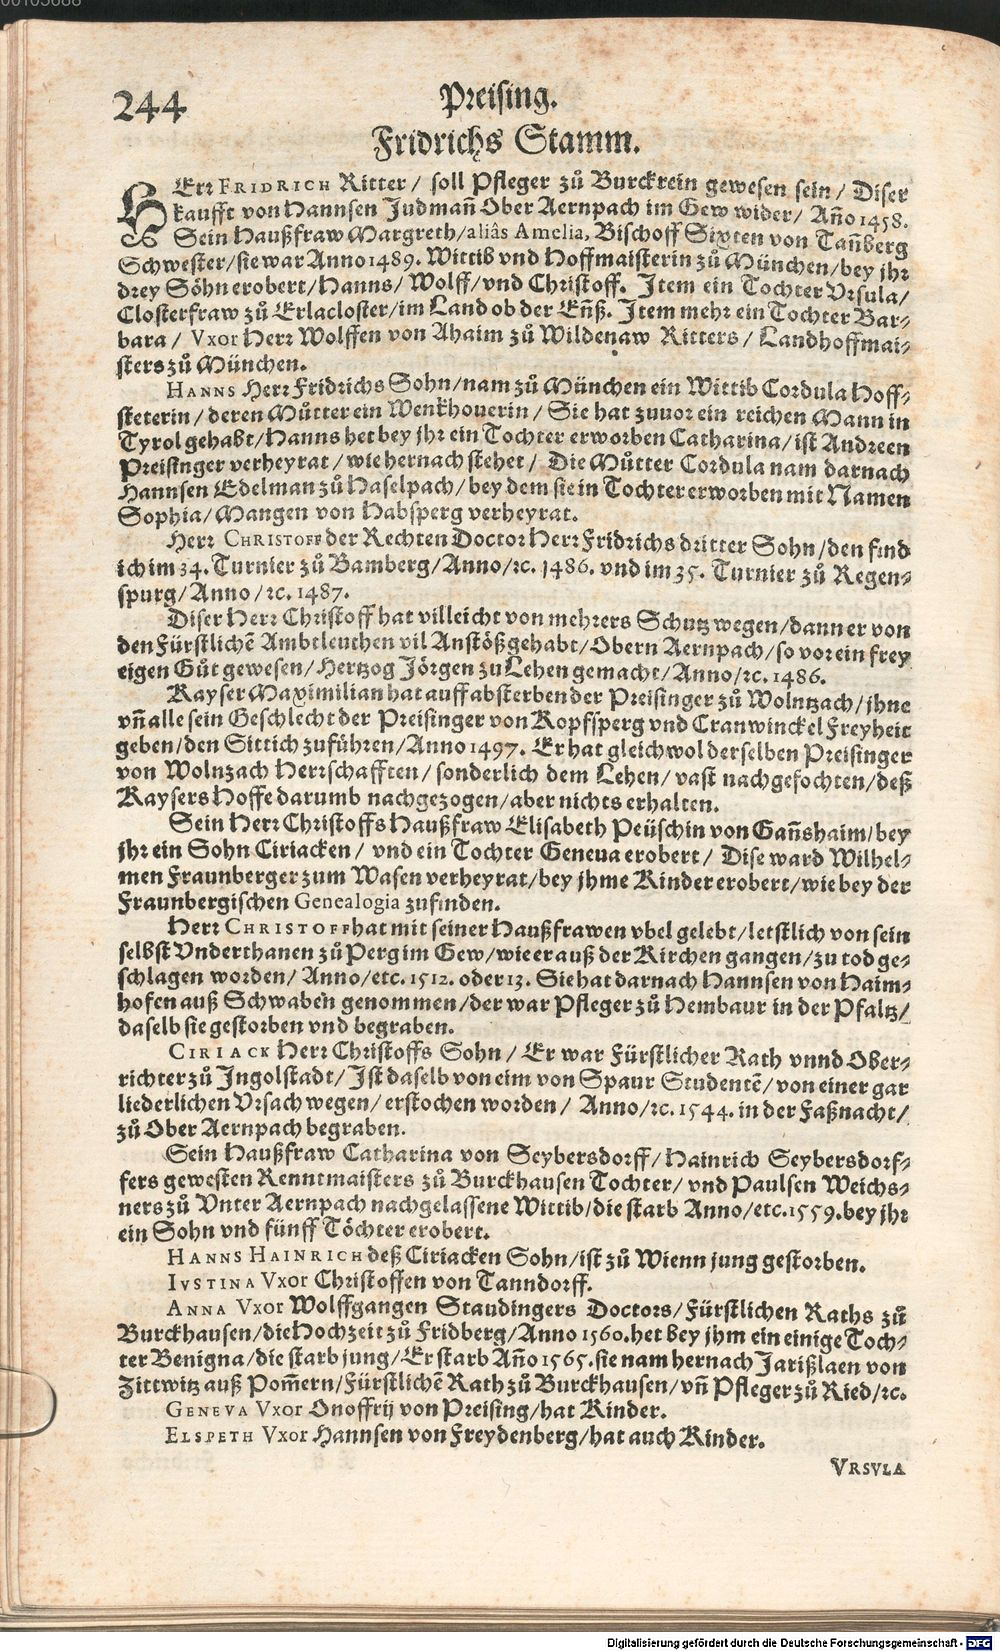 244 Preising.
Fridrichs Stamm.
HErr FRIDRICH Ritter / soll Pfleger zů Burckrein gewesen sein / Diser
kaufft von Hannsen Judmañ Ober Aernpach im Gew wider / Año 1458.
Sein Haußfraw Margreth / aliâs Amelia, Bischoff Sixten von Tañberg
Schwester / sie war Anno 1489. Wittib vnd Hoffmaisterin zů München / bey jhr
drey Söhn erobert / Hanns / Wolff / vnd Christoff. Item ein Tochter Vrsula /
Closterfraw zů Erlacloster / im Land ob der Eñß. Item mehr ein Tochter Bar-
bara / Vxor Herr Wolffen von Ahaim zů Wildenaw Ritters / Landhoffmai-
sters zů München.
HANNS Herr Fridrichs Sohn / nam zů München ein Wittib Cordula Hoff-
steterin / deren Můtter ein Wenkhouerin / Sie hat zuuor ein reichen Mann in
Tyrol gehabt / Hanns het bey jhr ein Tochter erworben Catharina / ist Andreen
Preisinger verheyrat / wie hernach stehet / Die Můtter Cordula nam darnach
Hannsen Edelman zů Haselpach / bey dem sie in Tochter erworben mit Namen
Sophia / Mangen von Habsperg verheyrat.
Herr CHRISTOFF der Rechten Doctor Herr Fridrichs dritter Sohn / den find
ich im 34. Turnier zů Bamberg / Anno / ꝛc. 1486. vnd im 35. Turnier zů Regen-
spurg / Anno / ꝛc. 1487.
Diser Herr Christoff hat villeicht von mehrers Schutz wegen / dann er von
den Fürstlichē Ambtleuthen vil Anstöß gehabt / Obern Aernpach / so vor ein frey
eigen Gůt gewesen / Hertzog Jörgen zu Lehen gemacht / Anno / ꝛc. 1486.
Kayser Maximilian hat auff absterben der Preisinger zů Wolntzach / jhne
vñ alle sein Geschlecht der Preisinger von Kopfsperg vnd Cranwinckel Freyheit
geben / den Sittich zuführen / Anno 1497. Er hat gleichwol derselben Preisinger
von Wolnzach Herrschafften / sonderlich dem Lehen / vast nachgefochten / deß
Kaysers Hoffe darumb nachgezogen / aber nichts erhalten.
Sein Herr Christoffs Haußfraw Elisabeth Peüschin von Gañshaim / bey
jhr ein Sohn Ciriacken / vnd ein Tochter Geneua erobert / Dise ward Wilhel-
men Fraunberger zum Wasen verheyrat / bey jhme Kinder erobert / wie bey der
Fraunbergischen Genealogia zufinden.
Herr CHRISTOFF hat mit seiner Haußfrawen vbel gelebt / letstlich von sein
selbst Vnderthanen zů Perg im Gew / wie er auß der Kirchen gangen / zu tod ge-
schlagen worden / Anno / etc. 1512. oder 13. Sie hat darnach Hannsen von Haim-
hofen auß Schwaben genommen / der war Pfleger zů Hembaur in der Pfaltz /
daselb sie gestorben vnd begraben.
CIRIACK Herr Christoffs Sohn / Er war Fürstlicher Rath vnnd Ober-
richter zů Ingolstadt / Ist daselb von eim von Spaur Studentē / von einer gar
liederlichen Vrsach wegen / erstochen worden / Anno / ꝛc. 1544. in der Faßnacht /
zů Ober Aernpach begraben.
Sein Haußfraw Catharina von Seybersdorff / Hainrich Seybersdorf-
fers gewesten Renntmaisters zů Burckhausen Tochter / vnd Paulsen Weichs-
ners zů Vnter Aernpach nachgelassene Wittib / die starb Anno / etc. 1559. bey jhr
ein Sohn vnd fünff Töchter erobert.
HANNS HAINRICH deß Ciriacken Sohn / ist zů Wienn jung gestorben.
IVSTINA Vxor Christoffen von Tanndorff.
ANNA Vxor Wolffgangen Staudingers Doctors / Fürstlichen Raths zů
Burckhausen / die Hochzeit zů Fridberg / Anno 1560. het bey jhm ein einige Toch-
ter Benigna / die starb jung / Er starb Año 1565. sie nam hernach Jarißlaen von
Zittwitz auß Pom̃ern / Fürstlichē Rath zů Burckhausen / vñ Pfleger zů Ried / ꝛc.
GENEVA Vxor Onoffrij von Preising / hat Kinder.
ELSPETH Vxor Hannsen von Freydenberg / hat auch Kinder.
VRSVLA
Digitalisierung gefördert durch die Deutsche Forschungsgemeinschaft - DFG